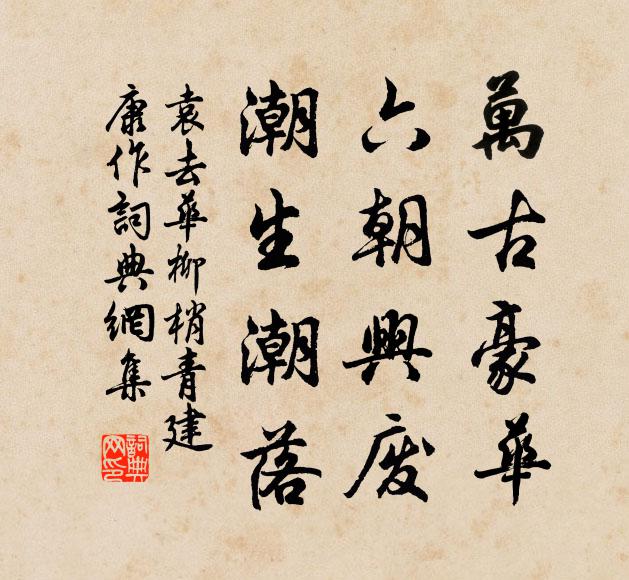 萬古豪華
六朝興廢
潮生潮落
袁去華柳梢青建
康作詞典網集
詞典网印